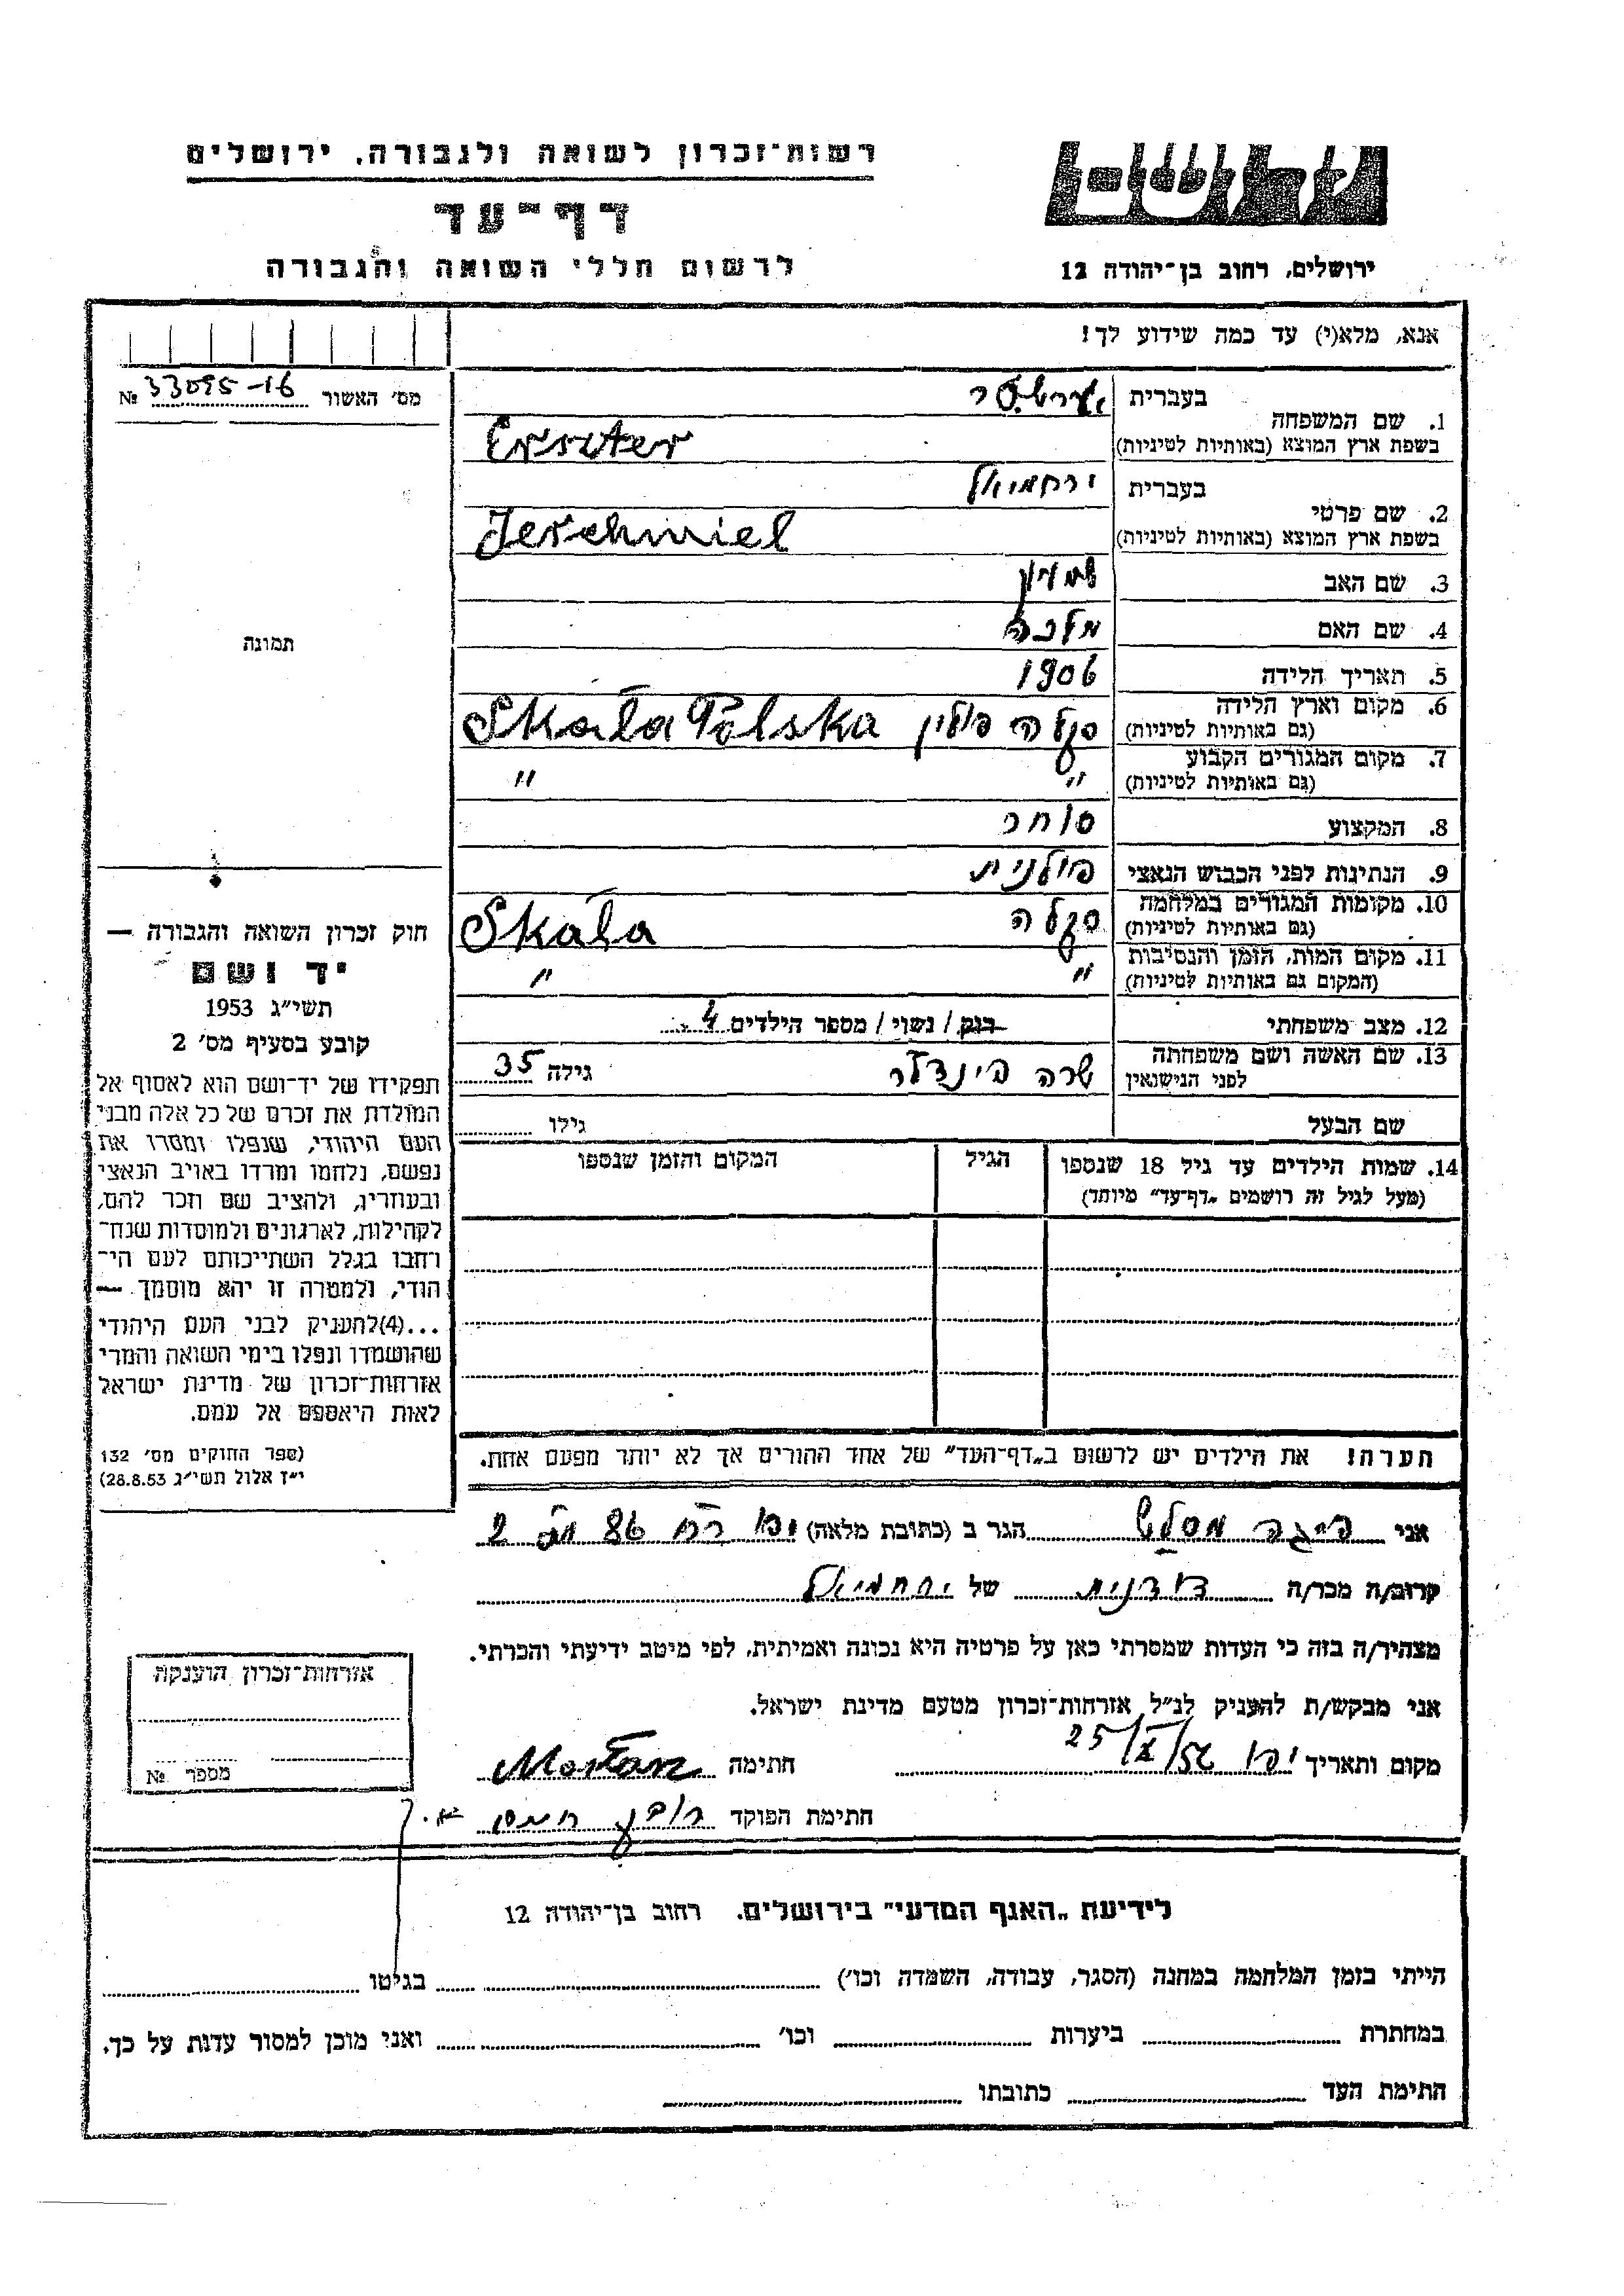 רשות־זכרון לשואה ולגבורה, ירושלים
דף־עד
לרשום חללי השואה והגבורה
ירושלים, רחוב בן־יהודה 12
אנא, מלא(י) עד כמה שידוע לך!
מס' האשור № 33095-16
תמונה
1. שם המשפחה
בעברית
בשפת ארץ המוצא (באותיות לטיניות) Erszter
2. שם פרטי
בעברית ירחמיאל
בשפת ארץ המוצא (באותיות לטיניות) Jerchmiel
3. שם האב שמעון
4. שם האם מלכה
5. תאריך הלידה 1906
6. מקום וארץ הלידה סקלה פולין Skała Polska
(גם באותיות לטיניות)
7. מקום המגורים הקבוע " "
(גם באותיות לטיניות)
8. המקצוע סוחר
9. הנתינות לפני הכבוש הנאצי פולנית
10. מקומות המגורים במלחמה סקלה Skała
(גם באותיות לטיניות)
11. מקום המות, הזמן והנסיבות " "
(המקום גם באותיות לטיניות)
12. מצב משפחתי רווק / נשוי / מספר הילדים 4
13. שם האשה ושם משפחתה
לפני הנישואין שרה גילה 35
שם הבעל גילו
14. שמות הילדים עד גיל 18 שנספו
(מעל לגיל זה רושמים „דף־עד" מיוחד)
הגיל
המקום והזמן שנספו
חוק זכרון השואה והגבורה —
יד ושם
תשי"ג 1953
קובע בסעיף מס' 2
תפקידו של יד־ושם הוא לאסוף אל
המולדת את זכרם של כל אלה מבני
העם היהודי, שנפלו ומסרו את
נפשם, נלחמו ומרדו באויב הנאצי
ובעוזריו, ולהציב שם וזכר להם,
לקהילות, לארגונים ולמוסדות שנח־
רבו בגלל השתייכותם לעם הי־
הודי, ולמטרה זו יהא מוסמך —
...(4)להעניק לבני העם היהודי
שהושמדו ונפלו בימי השואה והמרי
אזרחות־זכרון של מדינת ישראל
לאות היאספם אל עמם.
(ספר החוקים מס' 132
י"ז אלול תשי"ג 28.8.53)
הערה! את הילדים יש לרשום ב„דף־העד" של אחד ההורים אך לא יותר מפעם אחת.
אני הגר ב (כתובת מלאה) יפו 86 2
קרוב/ה מכר/ה דודנית של ירחמיאל
מצהיר/ה בזה כי העדות שמסרתי כאן על פרטיה היא נכונה ואמיתית, לפי מיטב ידיעתי והכרתי.
אני מבקש/ת להעניק לנ"ל אזרחות־זכרון מטעם מדינת ישראל.
מקום ותאריך יפו 25/X/56 חתימה
חתימת הפוקד ראובן
אזרחות־זכרון הוענקה
מספר №
לידיעת „האגף המדעי" בירושלים. רחוב בן־יהודה 12
הייתי בזמן המלחמה במחנה (הסגר, עבודה, השמדה וכו') בגיטו
במחתרת ביערות וכו' ואני מוכן למסור עדות על כך.
חתימת העד כתובתו